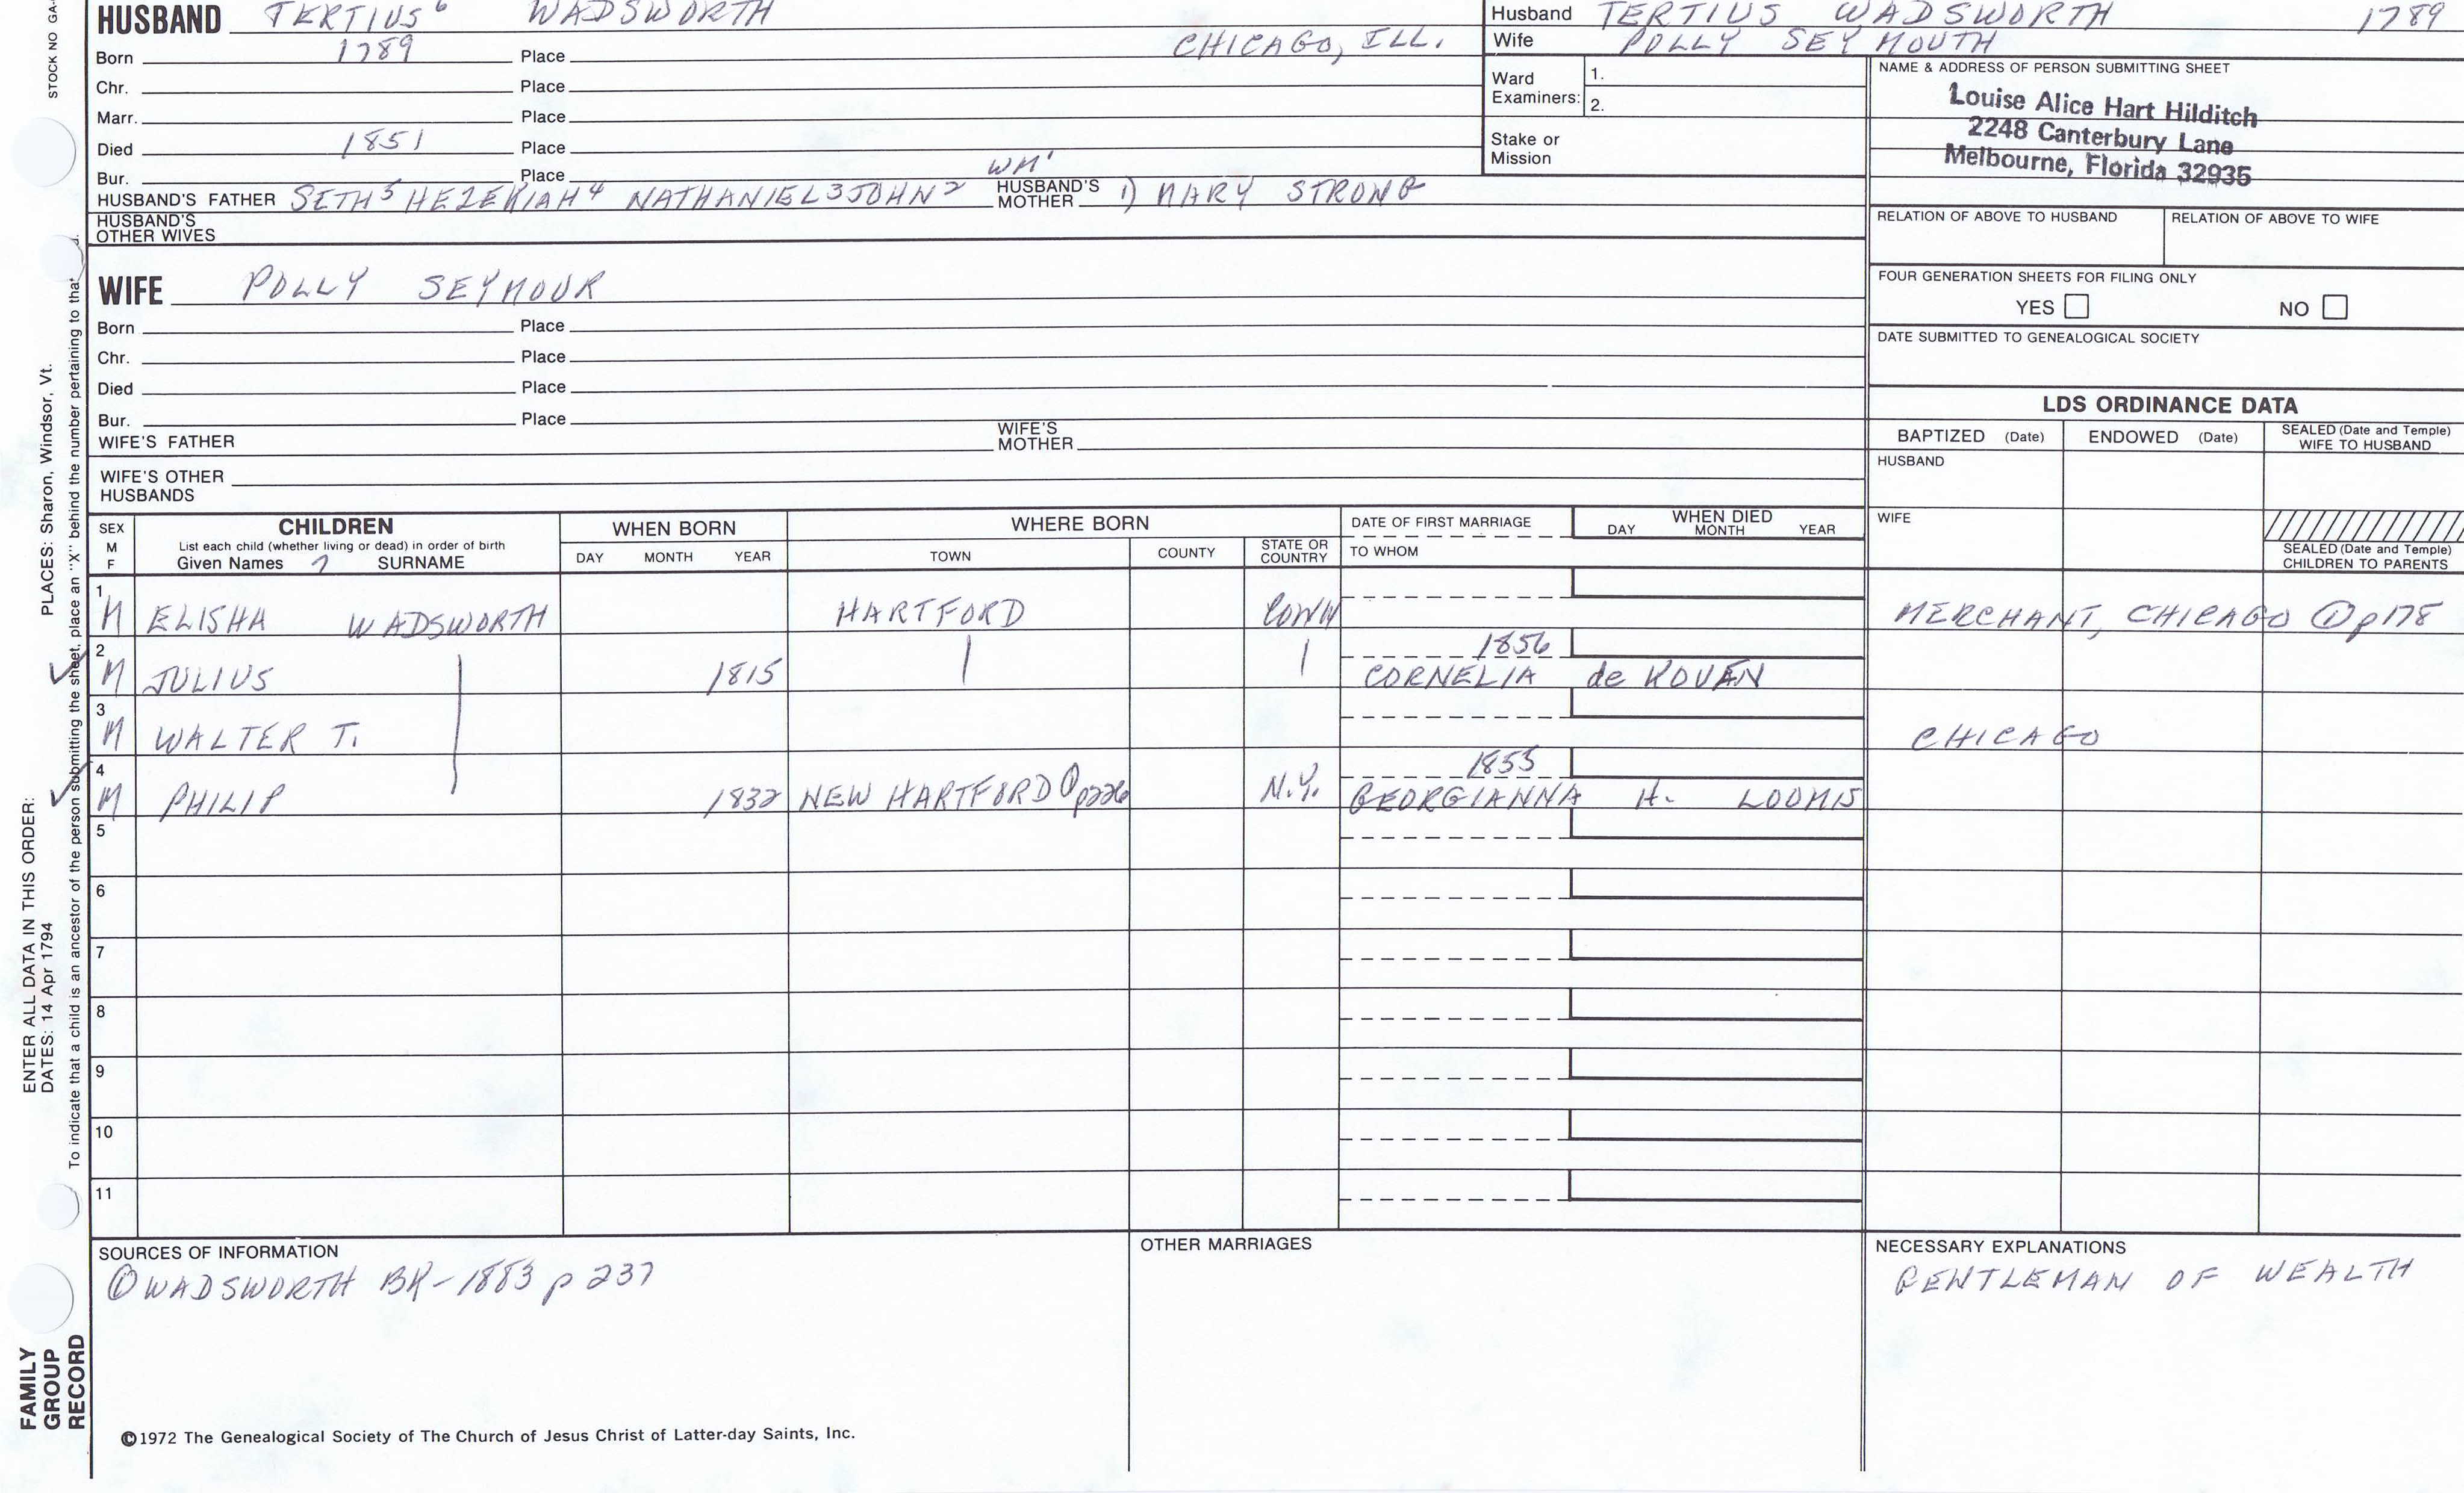 STOCK NO GA-
HUSBAND TERTIUS⁶ WADSWORTH
Born 1789 Place CHICAGO, ILL.
Chr. Place
Marr. Place
Died 1851 Place
Bur. Place
WM¹
HUSBAND'S FATHER SETH⁵ HEZEKIAH⁴ NATHANIEL³ JOHN² HUSBAND'S MOTHER 1) MARY STRONG
HUSBAND'S OTHER WIVES
Husband TERTIUS WADSWORTH 1789
Wife POLLY SEYMOUTH
Ward Examiners: 1.
2.
Stake or Mission
NAME & ADDRESS OF PERSON SUBMITTING SHEET
Louise Alice Hart Hilditch
2248 Canterbury Lane
Melbourne, Florida 32935
RELATION OF ABOVE TO HUSBAND RELATION OF ABOVE TO WIFE
FOUR GENERATION SHEETS FOR FILING ONLY
YES NO
DATE SUBMITTED TO GENEALOGICAL SOCIETY
WIFE POLLY SEYMOUR
Born Place
Chr. Place
Died Place
Bur. Place
WIFE'S FATHER WIFE'S MOTHER
WIFE'S OTHER HUSBANDS
LDS ORDINANCE DATA
BAPTIZED (Date) ENDOWED (Date) SEALED (Date and Temple) WIFE TO HUSBAND
HUSBAND
WIFE
SEALED (Date and Temple) CHILDREN TO PARENTS
SEX M F
CHILDREN
List each child (whether living or dead) in order of birth
Given Names 7 SURNAME
WHEN BORN
DAY MONTH YEAR
WHERE BORN
TOWN COUNTY STATE OR COUNTRY
DATE OF FIRST MARRIAGE
TO WHOM
WHEN DIED
DAY MONTH YEAR
1 M ELISHA WADSWORTH HARTFORD CONN MERCHANT, CHICAGO ① p178
2 M JULIUS | 1815 | | 1856 CORNELIA de KOVAN
3 M WALTER T. CHICAGO
4 M PHILIP 1832 NEW HARTFORD ① p226 N.Y. 1855 GEORGIANNA H. LOOMIS
5
6
7
8
9
10
11
SOURCES OF INFORMATION
① WADSWORTH BK - 1883 p 237
OTHER MARRIAGES
NECESSARY EXPLANATIONS
GENTLEMAN OF WEALTH
©1972 The Genealogical Society of The Church of Jesus Christ of Latter-day Saints, Inc.
FAMILY
GROUP
RECORD
ENTER ALL DATA IN THIS ORDER:
DATES: 14 Apr 1794
PLACES: Sharon, Windsor, Vt.
To indicate that a child is an ancestor of the person submitting the sheet, place an "X" behind the number pertaining to that